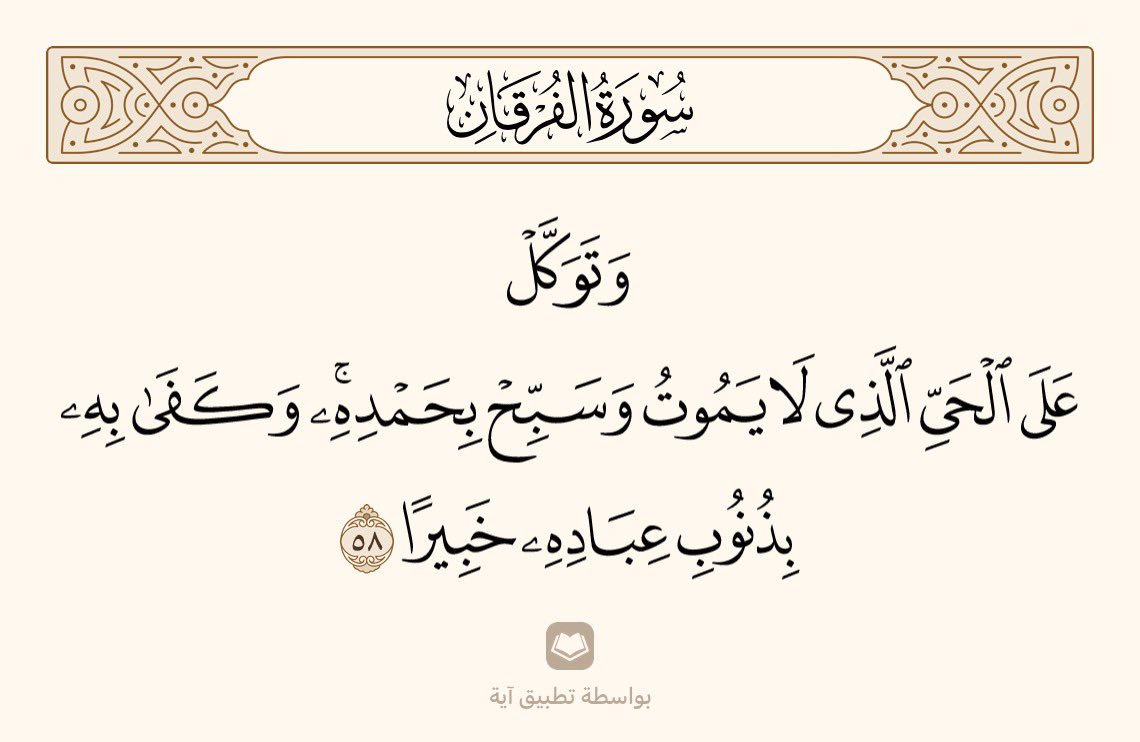 سُورَةُ الفُرْقَانِ
وَتَوَكَّلۡ
عَلَى ٱلۡحَيِّ ٱلَّذِي لَا يَمُوتُ وَسَبِّحۡ بِحَمۡدِهِۦۚ وَكَفَىٰ بِهِۦ
بِذُنُوبِ عِبَادِهِۦ خَبِيرًا ٥٨
بواسطة تطبيق آية